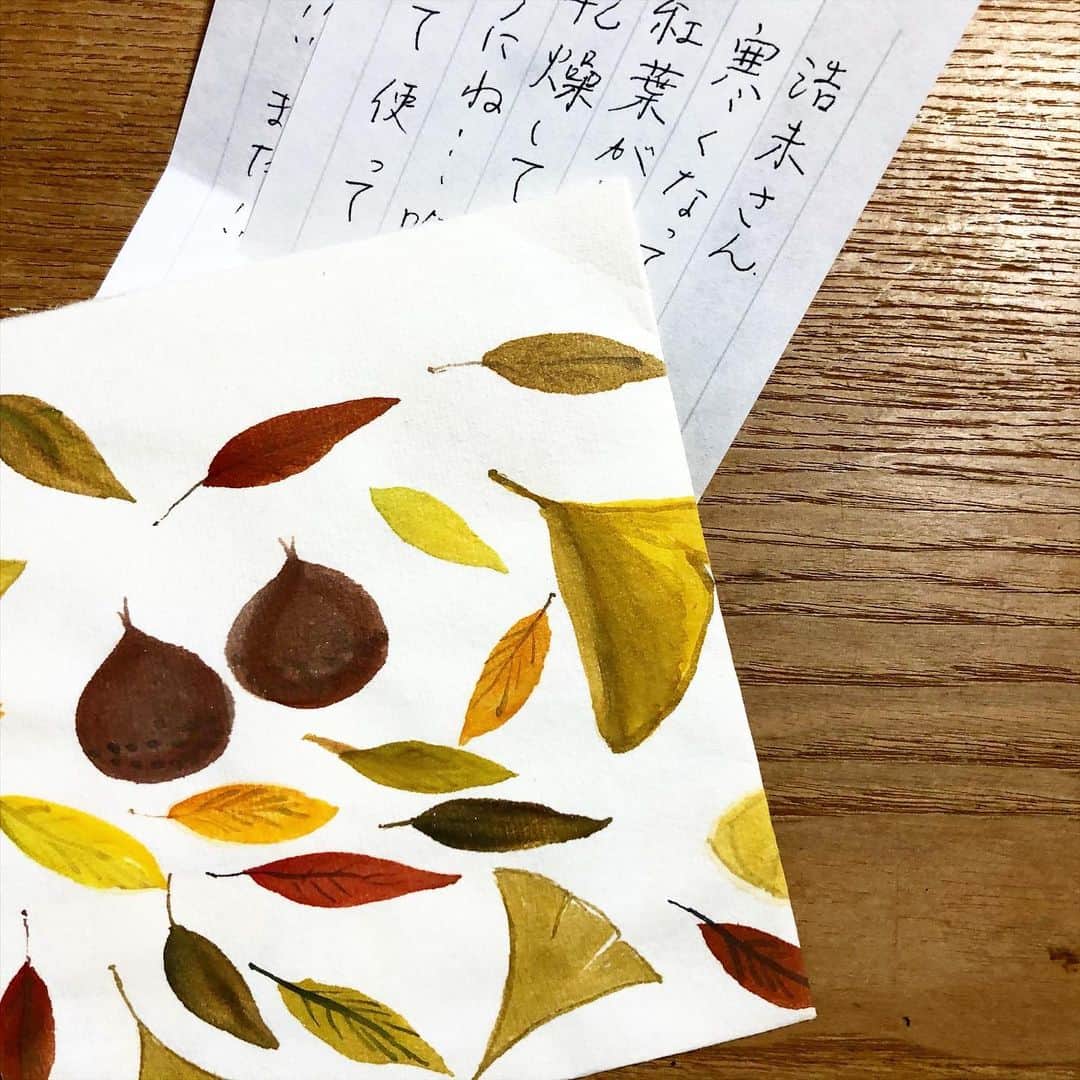 浩未さん
寒くなって
紅葉が
燥して
にね…
て使って
また!!